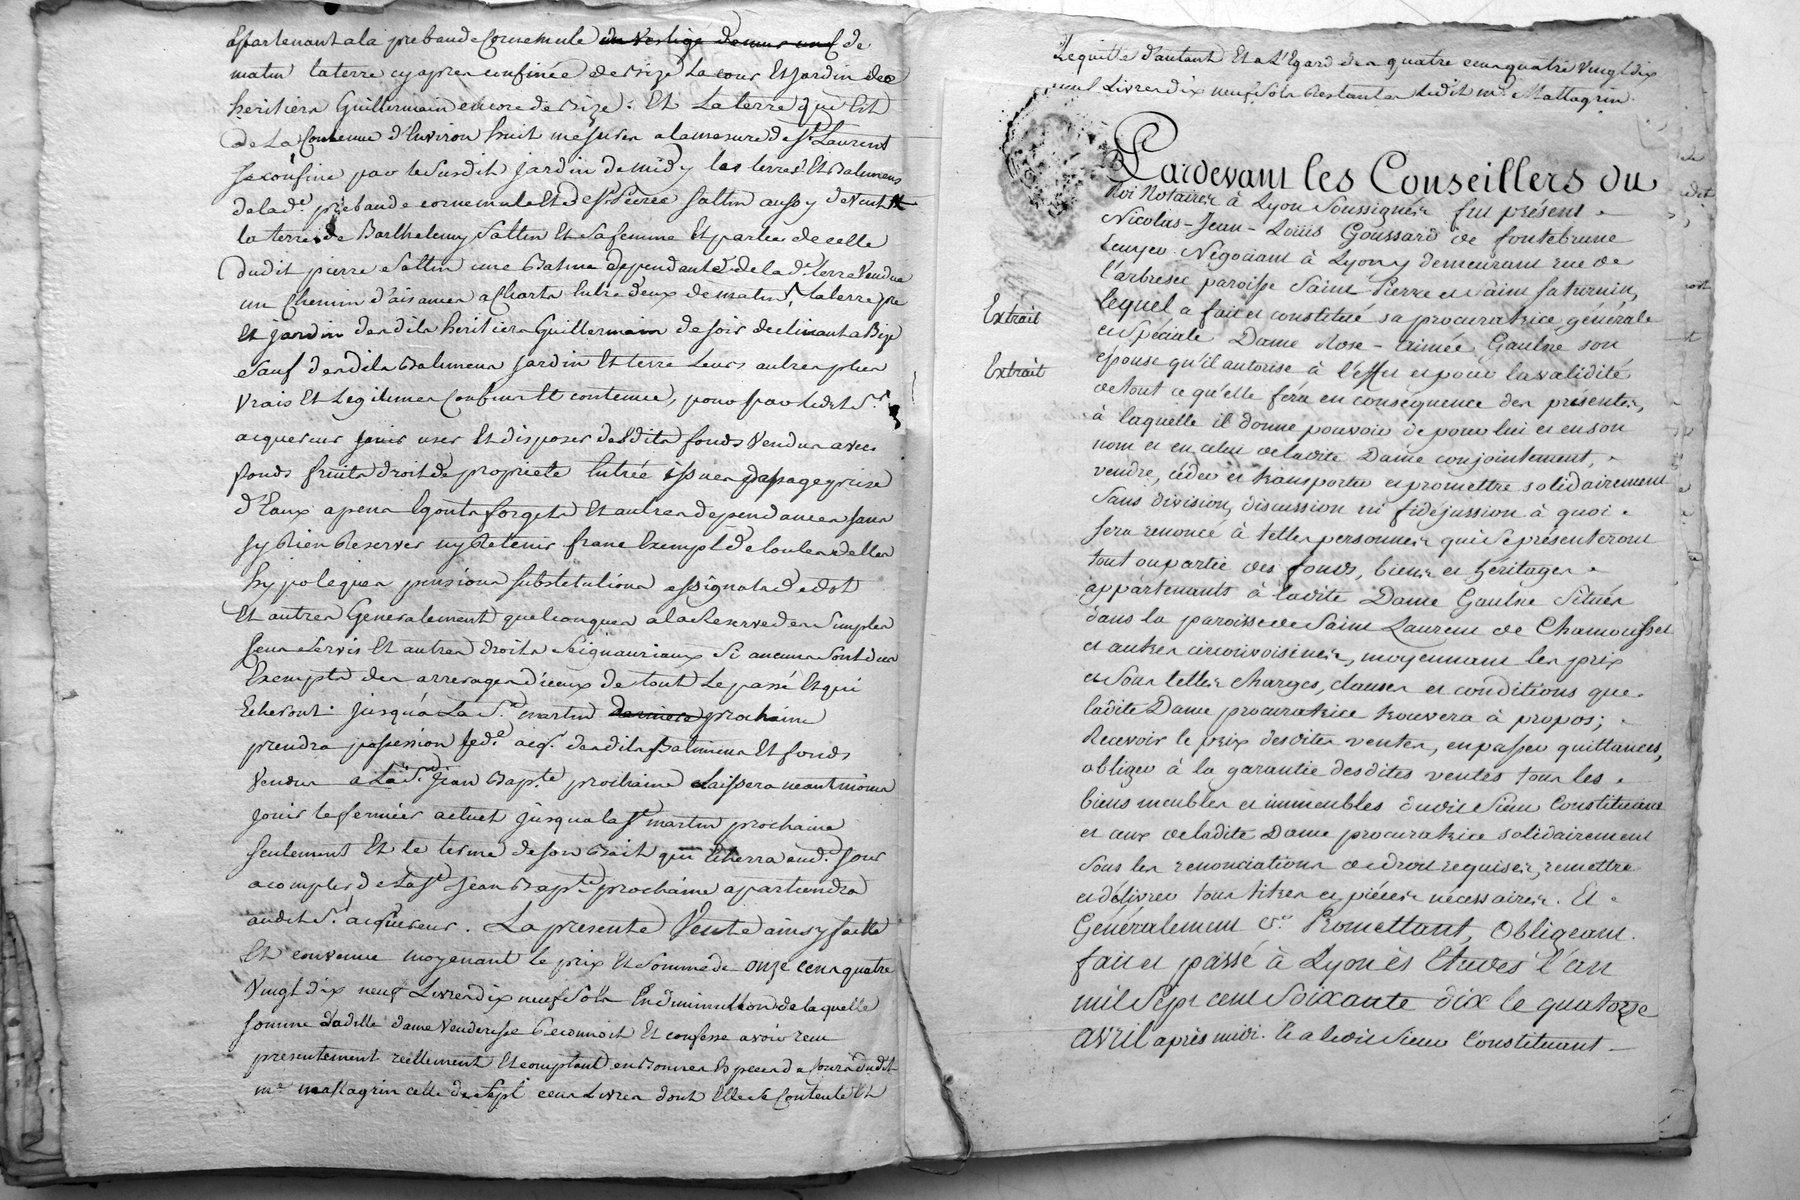 apartenant a la prebande Cornemule du Vestige de mur neuf de
matin la terre cy apres confinée de Bize La cour Et Jardin des
heritiers Guillermain encore de Bize; Et La terre que Est
de La Contenue d'Environ huit mesures a la mesure de St. Laurent
se confine par le susdit Jardin de midy les terres Et Batimens
de lad.e prebande cornemule Et de Sr. pierre Sattin aussy de vent
la terre de Barthelemy Sattin Et sa femme Et partie de celle
dudit pierre Sattin une Batime dependante de la d.e terre Vendue
un chemin d'aisances a Charts Entre deux de matin, la terre pre
Et jardin desdits heritiers Guillermain de soir declinant a Bize
sauf desdits Batimens jardin Et terre Leurs autres plus
vrais Et Legitimes Confins Et contenue, pour par ledit Sr.
acquereur jouir user Et disposer desdits fonds Vendus avec
fonds fruits droit de propriete Entrée issues passage prise
d'Eaux apens Egouts forgets Et autres dependances sans
sy Rien Reserver ny Retenir franc Exempt de toutes dettes
hypoteques pensions substitutions assignats de dot
Et autres Generalement quelconques a la Reserve des Simples
Cens Servis Et autres droits Seigneuriaux Si aucuns sont dus
Exempts des arrerages d'iceux de tout Le passé Et qui
Echeront jusqu'a La St. martin derniere prochaine
prendra possession led.t acq.r desdits Batimens Et fonds
vendus a La St. Jean Bapt.e prochaine Laissera neantmoins
Jouir le fermier actuel jusqua la St martin prochaine
seulement Et le terme de son Bail qui Echerra aud.t Jour
a compter de La St Jean Bapt.e prochaine apartiendra
audit Sr. acquereur. La presente Vente ainsy faitte
Et convenue moyenant le prix Et Somme de onze cens quatre
Vingt dix neuf Livres dix neuf Sols En diminution de laquelle
somme ladite dame Venderesse Reconnoit Et confesse avoir reçu
presentement réellement Et comptant en Bonnes Especes de Cours dudit
me. mattagrin celle de Sept cens Livres dont Elle Se Contente Et
Lequitte d'autant Et a L'Egard des quatre cens quatre Vingt dix
neuf Livres dix neuf Sols Restantes Ledit me. Mattagrin
Pardevant les Conseillers du
Roi Notaires à Lyon Soussignés fut présent
Nicolas-Jean-Louis Goussard de fontebrune
Ecuyer Négociant à Lyon y demeurant rue de
l'arbresec paroisse Saint Pierre et Saint Saturnin,
Extrait
lequel, a fait et constitué sa procuratrice générale
et spéciale Dame Rose-aimée Gaulne son
Extrait
épouse qu'il autorise à l'effet et pour la validité
de tout ce qu'elle fera en conséquence des presentes,
à laquelle il donne pouvoir de pour lui et en son
nom et en celui de ladite Dame conjointement,
vendre, céder et transporter et promettre solidairement
Sans division, discussion ni fidéjussion à quoi
sera renoncé à telles personnes qui se présenteront
tout ou partie des fonds, biens et héritages
appartenants à ladite Dame Gaulne Situés
dans la paroisse de Saint Laurent de Chamousset
et autres circonvoisines, moyennant les prix
et Sous telles charges, clauses et conditions que
ladite Dame procuratrice trouvera à propos;
Recevoir le prix desdites ventes, en passer quittances,
obliger à la garantie desdites ventes tous les
biens meubles et immeubles dudit Sieur Constituant
et ceux de ladite Dame procuratrice solidairement
Sous les renonciations de droit requises, remettre
et délivrer tous titres et pièces nécessaires. Et
Généralement &a. Promettant, Obligeant
fait et passé à Lyon ès Etudes l'an
mil Sept cent Soixante dix le quatorze
avril après midi. Et a ledit Sieur Constituant